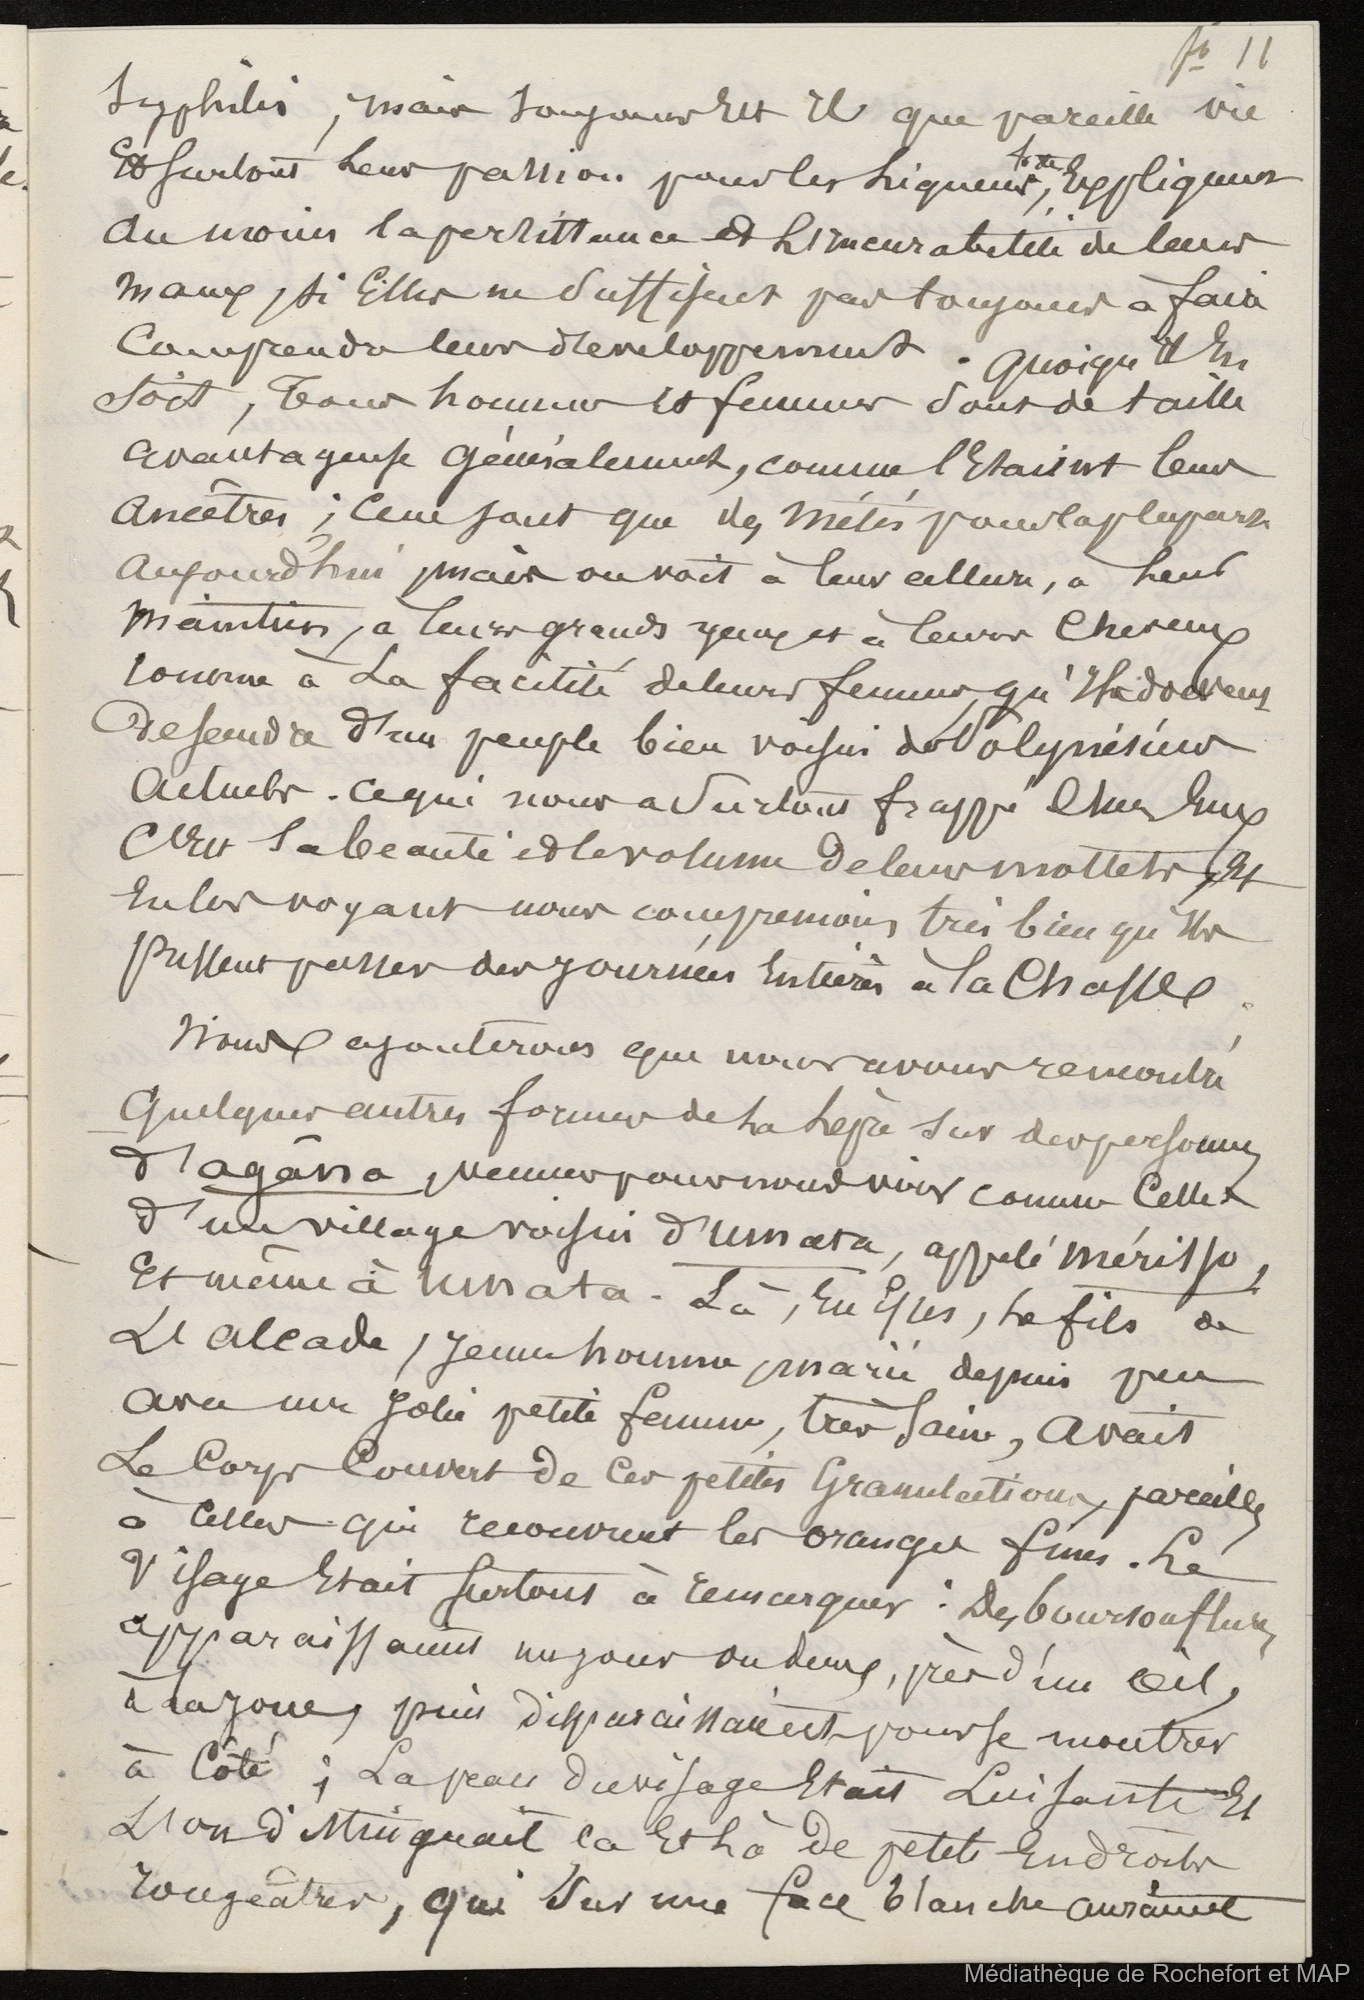 fo 11
Syphilis, mais toujours est il que pareille vie
et surtout leur passion pour les liqueurs fortes, expliquent
du moins la persistance et l'incurabilité de leurs
maux, si elles ne suffisent pas toujours à faire
comprendre leur développement. quoiqu'il en
soit, tous hommes et femmes sont de taille
avantageuse généralement, comme l'étaient leurs
ancêtres ; ce ne sont que des métis pour la plupart
aujourd'hui, mais on voit à leur allure, à leur
maintien, à leurs grands yeux et à leurs cheveux
comme à la facilité de leurs femmes, qu'ils doivent
descendre d'un peuple bien voisin des Polynésiens
actuels. ce qui nous a surtout frappé chez eux
c'est la beauté et le volume de leurs mollets, et
en les voyant nous comprenions très bien qu'ils
pussent passer des journées entières à la chasse.
Nous ajouterons que nous avons rencontré
quelques autres formes de la lèpre sur des personnes
d'agâna, venues pour nous voir comme celles
d'un village voisin d'umata, appelé mérisso,
et même à umata. Là, en effet, le fils de
L'alcade, jeune homme, marié depuis peu
avec une jolie petite femme, très saine, avait
Le corps couvert de ces petites granulations, pareilles
à celles qui recouvrent les oranges fines. Le
visage était surtout à remarquer : des boursouflures
apparaissaient un jour ou deux, près d'un œil,
à la joue, puis disparaissaient pour se montrer
à côté ; La peau du visage était luisante et
L'on distinguait ça et là de petits endroits
rougeâtres, qui sur une face blanche auraient
Médiathèque de Rochefort et MAP